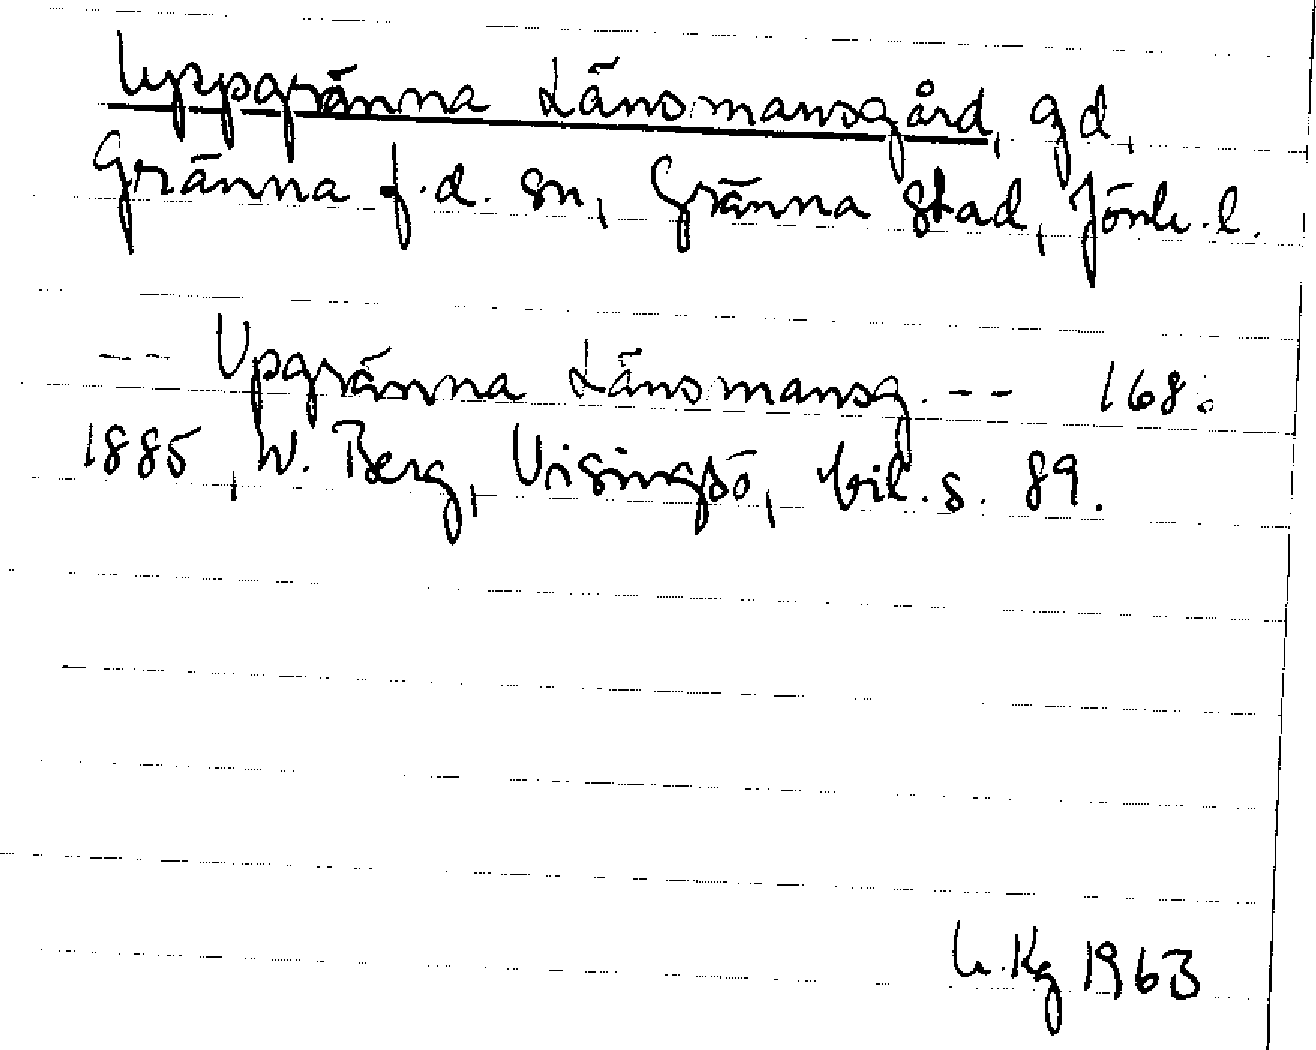 Uppgränna Länsmansgård, gd,
Gränna f.d. sn, Gränna stad, Jönk.l.
-- Upgränna Länsmansg. -- 168:
1885, W. Berg, Visingsö, bil. s. 89.
Kg 1963